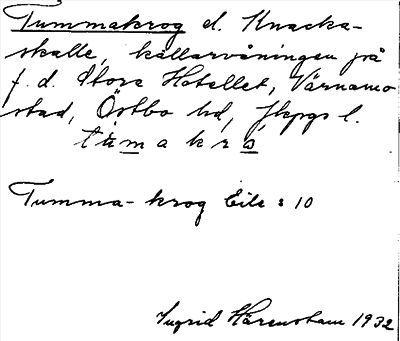 Tummakrog el. Knacka-
skalle, källarvåningen på
f. d. Stora Hotellet, Värnamo
stad, Östbo hd, Jkpgs l.
tümakrɷ
Tumma-krog Eile : 10
Ingrid Härenstam 1932